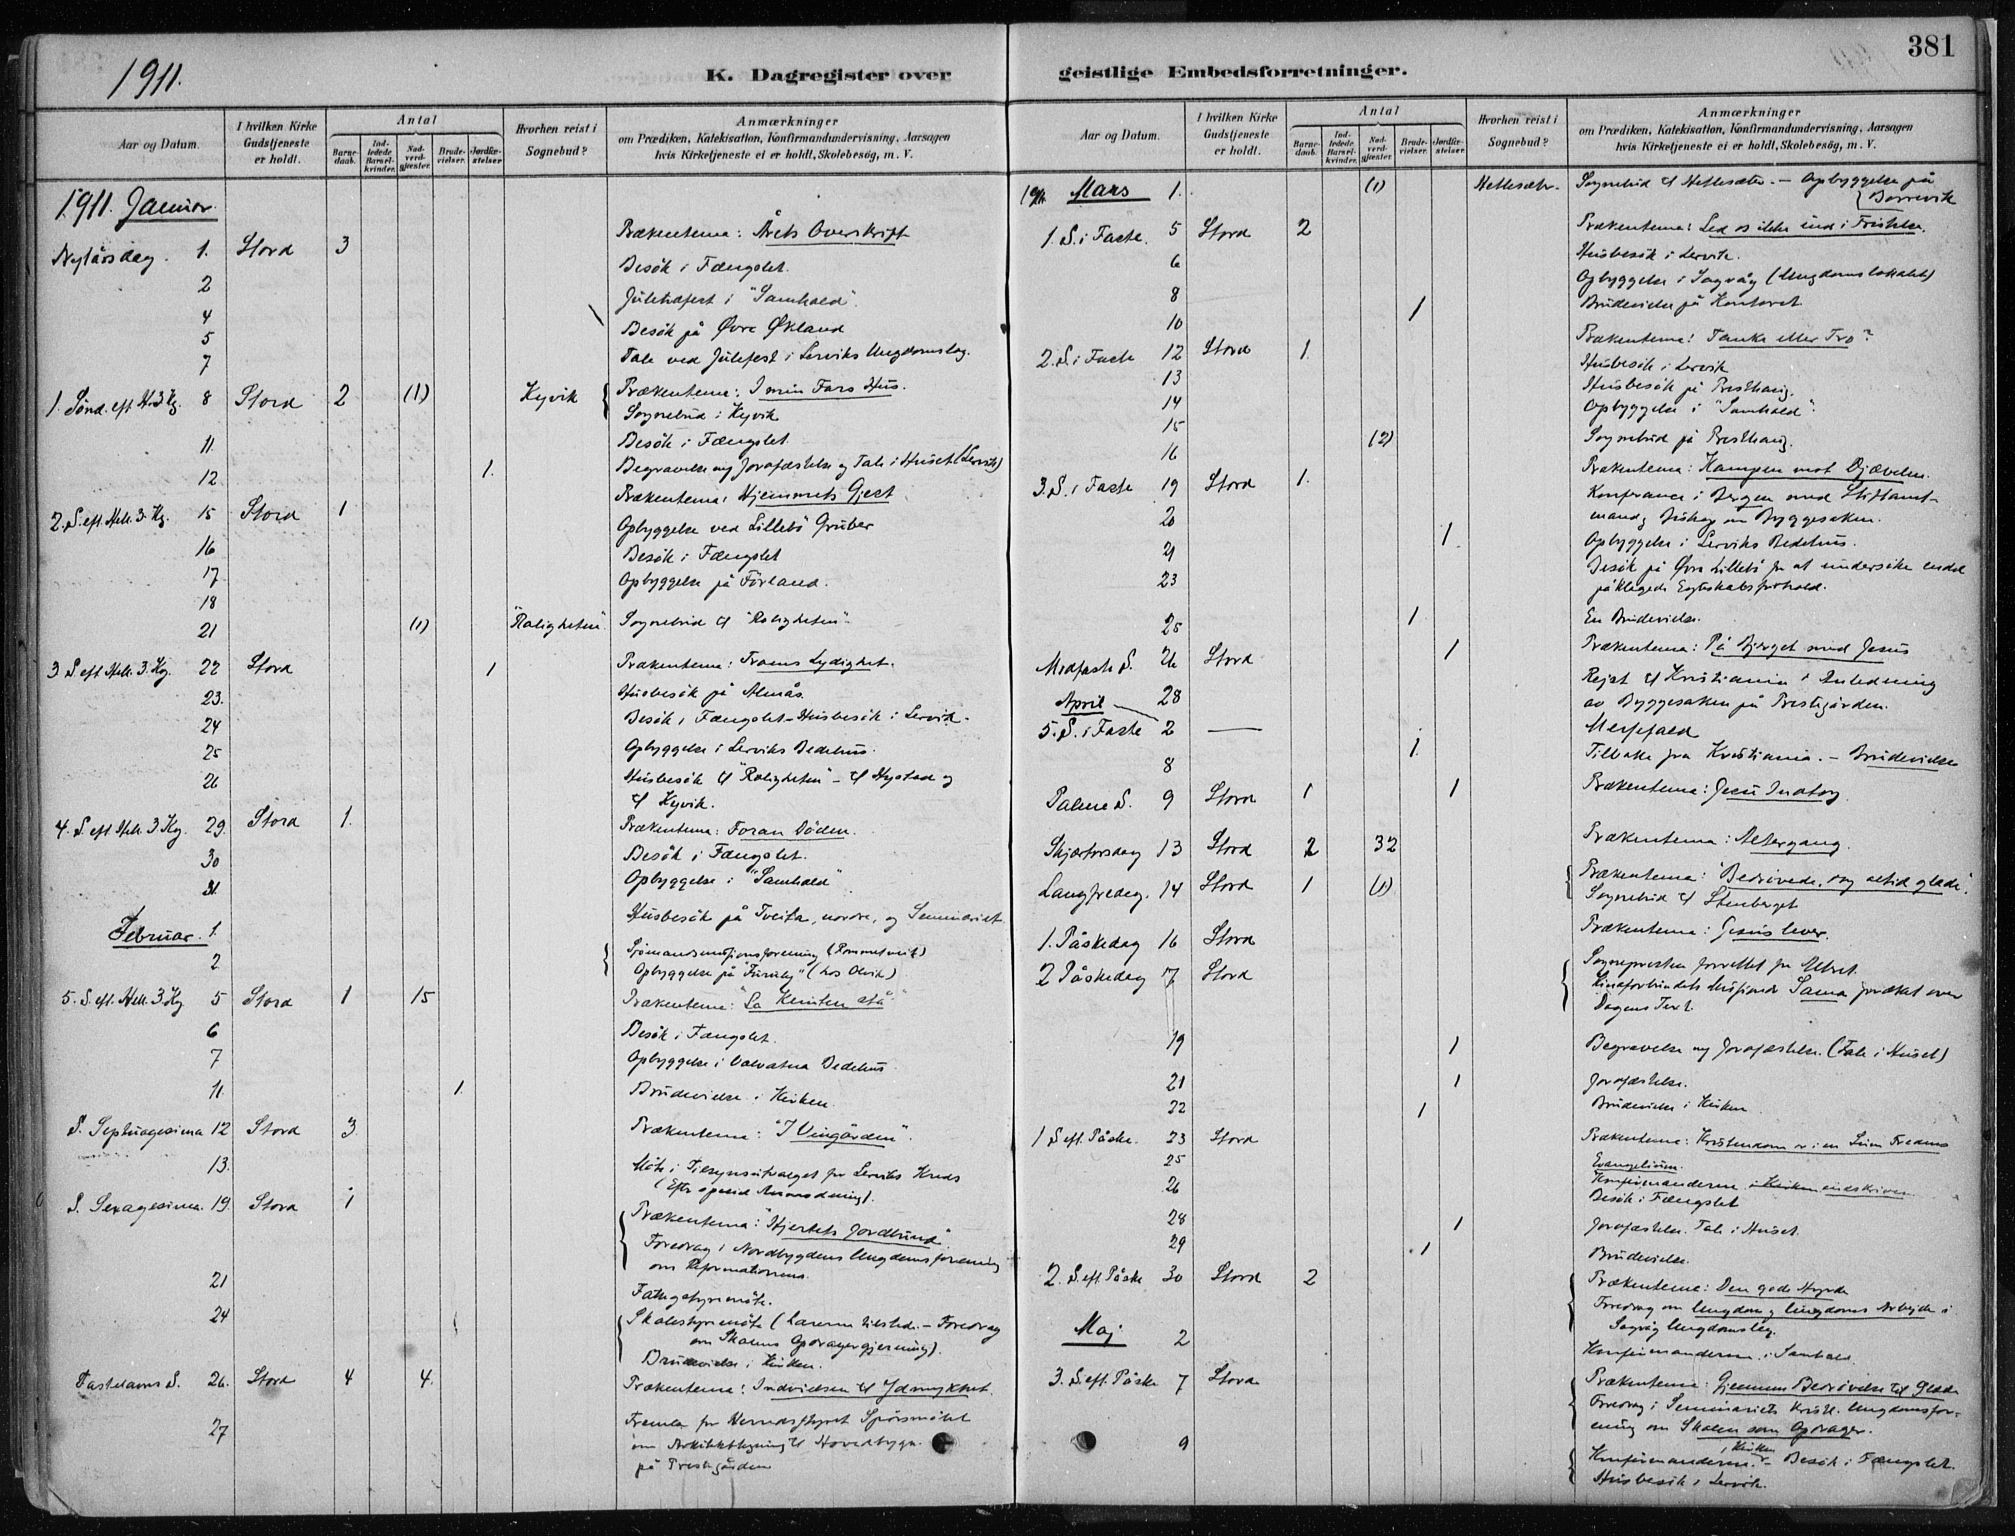 381
1911.
K. Dagregister over geistlige Embedsforretninger.
Aar og Datum.
I hvilken Kirke Gudstjeneste er holdt.
Antal
Barnedaab.
Indledede Barselkvinder.
Nadverdgjæster.
Brudevielser.
Jordfæstelser
Hvorhen reist i Sognebud?
Anmærkninger
om Prædiken, Katekisation, Konfirmandundervisning, Aarsagen
hvis Kirketjeneste ei er holdt, Skolebesøg, m. V.
1911. Januar.
Nytårsdag. 1. Stord 3 Prækentema: Årets Overskrift
2 Besök i Fængslet.
4 Juletræfest i "Samhold".
5 Besök på Øvre Økland
7 Tale ved Julefest i Lerviks Ungdomslag.
1. Sönd. eft. H. 3 Kg. 8 Stord 2 (1) Kyvik Prækentema: I min Fars Hus.
Sognebud i Kyvik
11. Besök i Fængslet.
12 1. Begravelse og Jordfæstelse og Tale i Huset (Lervik)
2. S. eft. Hell. 3. Kg. 15 Stord 1 Prækentema: Hjemmets Gjest
16 Opbyggelse ved Lillebö Gruber
17 Besök i Fængslet
18 Opbyggelse på Förland.
21 (1) "Roligheten" Sognebud til "Roligheten".
3 S. eft. Hell. 3. Kg. 22 Stord 1 Prækentema: Troens Lydighet.
23. Husbesök på Almås.
24 Besök i Fængslet - Husbesök i Lervik.
25 Opbyggelse i Lerviks Bedehus.
26 Husbesök til "Roligheten" - til Hystad og
til Kyvik.
4. S. eft. Hell. 3 Kg. 29. Stord 1. Prækentema: Foran Döden.
30 Besök i Fængslet.
31. Opbyggelse i "Samhold"
Februar. 1. Husbesök på Tveita, nordre, og Seminariet.
2. Sjömandsmisjonsforening (Rommetveit)
Opbyggelse på "Furuly" (hos Olvik)
5. S. eft. Hell. 3 Kg 5 Stord 1 15 Prækentema: "La Kristen stå"
6 Besök i Fængslet.
7 Opbyggelse i Valvatna Bedehus.
11. 1. Brudevielse i Kirken.
S. Septuagesima 12 Stord 3 Prækentema: "I Vingården".
13. Möte i Tilsynsutvalget for Lerviks Kreds
(Efter speciel Anmodning).
S. Sexagesima. 19. Stord 1 Prækentema: "Hjertets Jordbund".
Foredrag i Nordbygdens Ungdomsforening
om Reformationens.
21 Fattigstyremöte.
24 Skolestyremöte (Lærerne tilstede. - Foredrag
om Skolens Opdragergjerning).
Brudevielse i Kirken.
Fastelavns S. 26. Stord 4 4. Prækentema: Indvielsen til Ydmykhet.
27 Fremla for Herredsstyret Spörsmålet
om Arkitekttegning til Hovedbygn.
på Prestegården
1911 Mars 1. (1) Hettesæter. Sognebud til Hettesæter. - Opbyggelse på
Borrevik
1. S. i Faste. 5 Stord 2 Prækentema: Led os ikke ind i Fristelse.
6 Husbesök i Lervik.
Opbyggelse i Sagvåg (Ungdomslokalet)
8 1 Brudevielse på Kontoret.
10
2. S. i Faste 12 Stord 1. Prækentema: Tanke eller Tro?
13 Husbesök i Lervik
14 Husbesök på Presthaug.
15 Opbyggelse i "Samhold".
16 (2) Sognebud på Presthaug.
3. S. i Faste 19 Stord 1. Prækentema: Kampen mot Djævelen.
20 Konferance i Bergen med Stiftamtmand
og Biskop om Byggesaken.
21 1. Opbyggelse i Lerviks Bedehus.
23 Besök på Øvre Lillebö for at undersöke endel
påklagede Egteskabsforhold.
25 1. En Brudevielse.
Midfaste S. 26 Stord 1 Prækentema: På Bjerget med Jesus
28 Rejst til Kristiania i Anledning
av Byggesaken på Prestegården.
April
5. S. i Faste 2 — Messefald
8 1. Tilbake fra Kristiania. - Brudevielse
Palme S. 9 Stord 1 1 Prækentema: Jesu Indtog.
Skjærtorsdag 13 Stord 2 32 Prækentema: Altergang.
Langfredag. 14 Stord 1 (1) Prækentema: "Bedrövede, dog altid glade".
Sognebud til Stenberget
1. Påskedag 16 Stord Prækentema: Jesus lever.
2 Påskedag 17 Stord Sognepresten forrettet for Alteret.
Kinaforbundets Misjonær Sama prækat over
Dagens Text.
19 1 Begravelse og Jordfæstelse. (Tale i Huset)
21 1 Jordfæstelse.
22 1 Brudevielse i Kirken
1 S. eft. Påske. 23 Stord Prækentema: Kristendom er i en Sum Fredens
Evangelium.
25 Konfirmanderne i Kirken indskriven
26 Besök i Fængslet
28 1 Jordfæstelse. Tale i Huset.
29 1 Brudevielse.
2. S. eft. Påske 30 Stord 2 Prækentema: Den gode Hyrde
Foredrag om Ungdom og Ungdoms Arbeide i
Sagvåg Ungdomslag.
Maj. 2 Konfirmanderne i Samhold.
3. S. eft. Påske 7 Stord Prækentema: Gjennem Bedrövelse til Glæde
Foredrag i Seminariets Kristl. Ungdomsforening
om Skolen som Opdrager.
9 Konfirmanderne i Kirken - Besök i Fængslet.
Husbesök i Lervik.